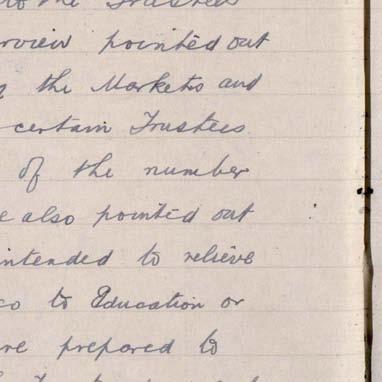 to the Trustees
rview pointed out
the Markets and
certain Trustees
of the number
e also pointed out
intended to relieve
to Education or
re prepared to